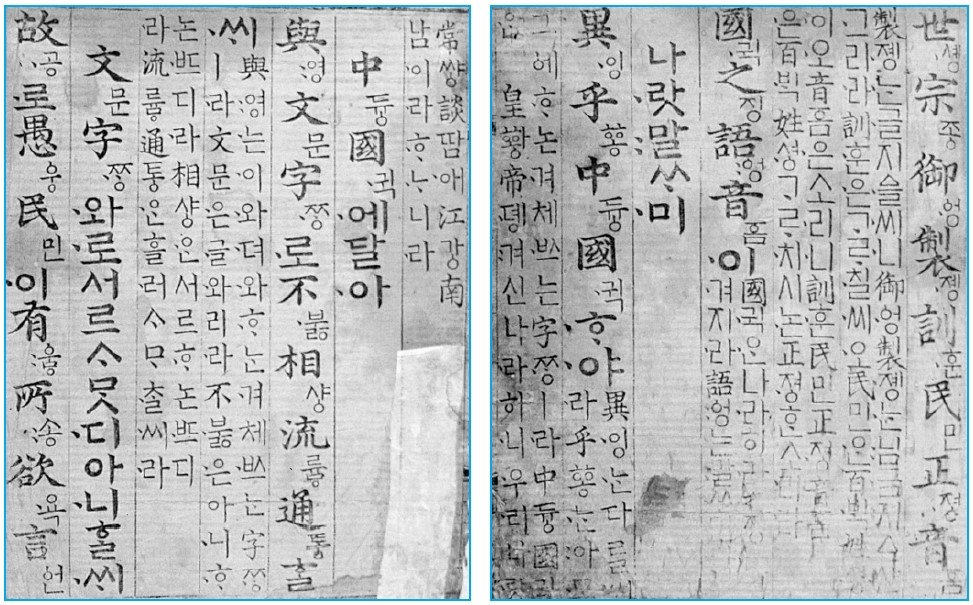 世솅宗종御엉製졩訓훈民민正졍音ᅙᅳᆷ
製졩는글지ᅀᅳᆯ씨니御엉製졩는님금지ᅀᅳ샨
그리라訓훈은ᄀᆞᄅᆞ칠씨오民민은百ᄇᆡᆨ姓
이오音ᅙᅳᆷ은소리니訓훈民민正졍音ᅙᅳᆷ
은百ᄇᆡᆨ姓셔ᇰᄀᆞᄅᆞ치시논正졍ᄒᆞᆫ소리라
國귁之징語ᅌᅥᆼ音ᅙᅳᆷ이國귁ᄋᆞᆫ나라히라
겨지라語ᅌᅥᆼ는말ᄊᆞ
나랏말ᄊᆞ미
異잉乎ᅘᅩᆼ中듀ᇰ國귁ᄒᆞ야異잉ᄂᆞᆫ다ᄅᆞᆯ씨
라乎ᅘᅩᆼᄂᆞᆫ아
그ᅌᅦᄒᆞ논겨체ᄡᅳ는字ᄍᆞᆼㅣ라中듀ᇰ國귁ᄋᆞᆫ
皇ᅘᅪᇰ帝뎽겨신나라히니우리나랏
常쌰ᇰ談땀애江가ᇰ南
남이라ᄒᆞᄂᆞ니라
中듀ᇰ國귁에달아
與영文문字ᄍᆞᆼ로不부ᇙ相샤ᇰ流류ᇢ通토ᇰᄒᆞᆯ
씨與영는이와뎌와ᄒᆞ는겨체ᄡᅳ는字ᄍᆞᆼ
ㅣ라文문은글와리라不부ᇙ은아니ᄒᆞ
논ᄠᅳ디라相샤ᇰᄋᆞᆫ서르ᄒᆞ논ᄠᅳ디
라流류ᇢ通토ᇰᄋᆞᆫ흘러ᄉᆞᄆᆞᄎᆞᆯ씨라
文문字ᄍᆞᆼ와로서르ᄉᆞᄆᆞᆺ디아니ᄒᆞᆯᄊᆡ
故공로愚ᅌᅮᆼ民민이有ᅌᅮᇢ所송欲욕言ᅌᅥᆫ